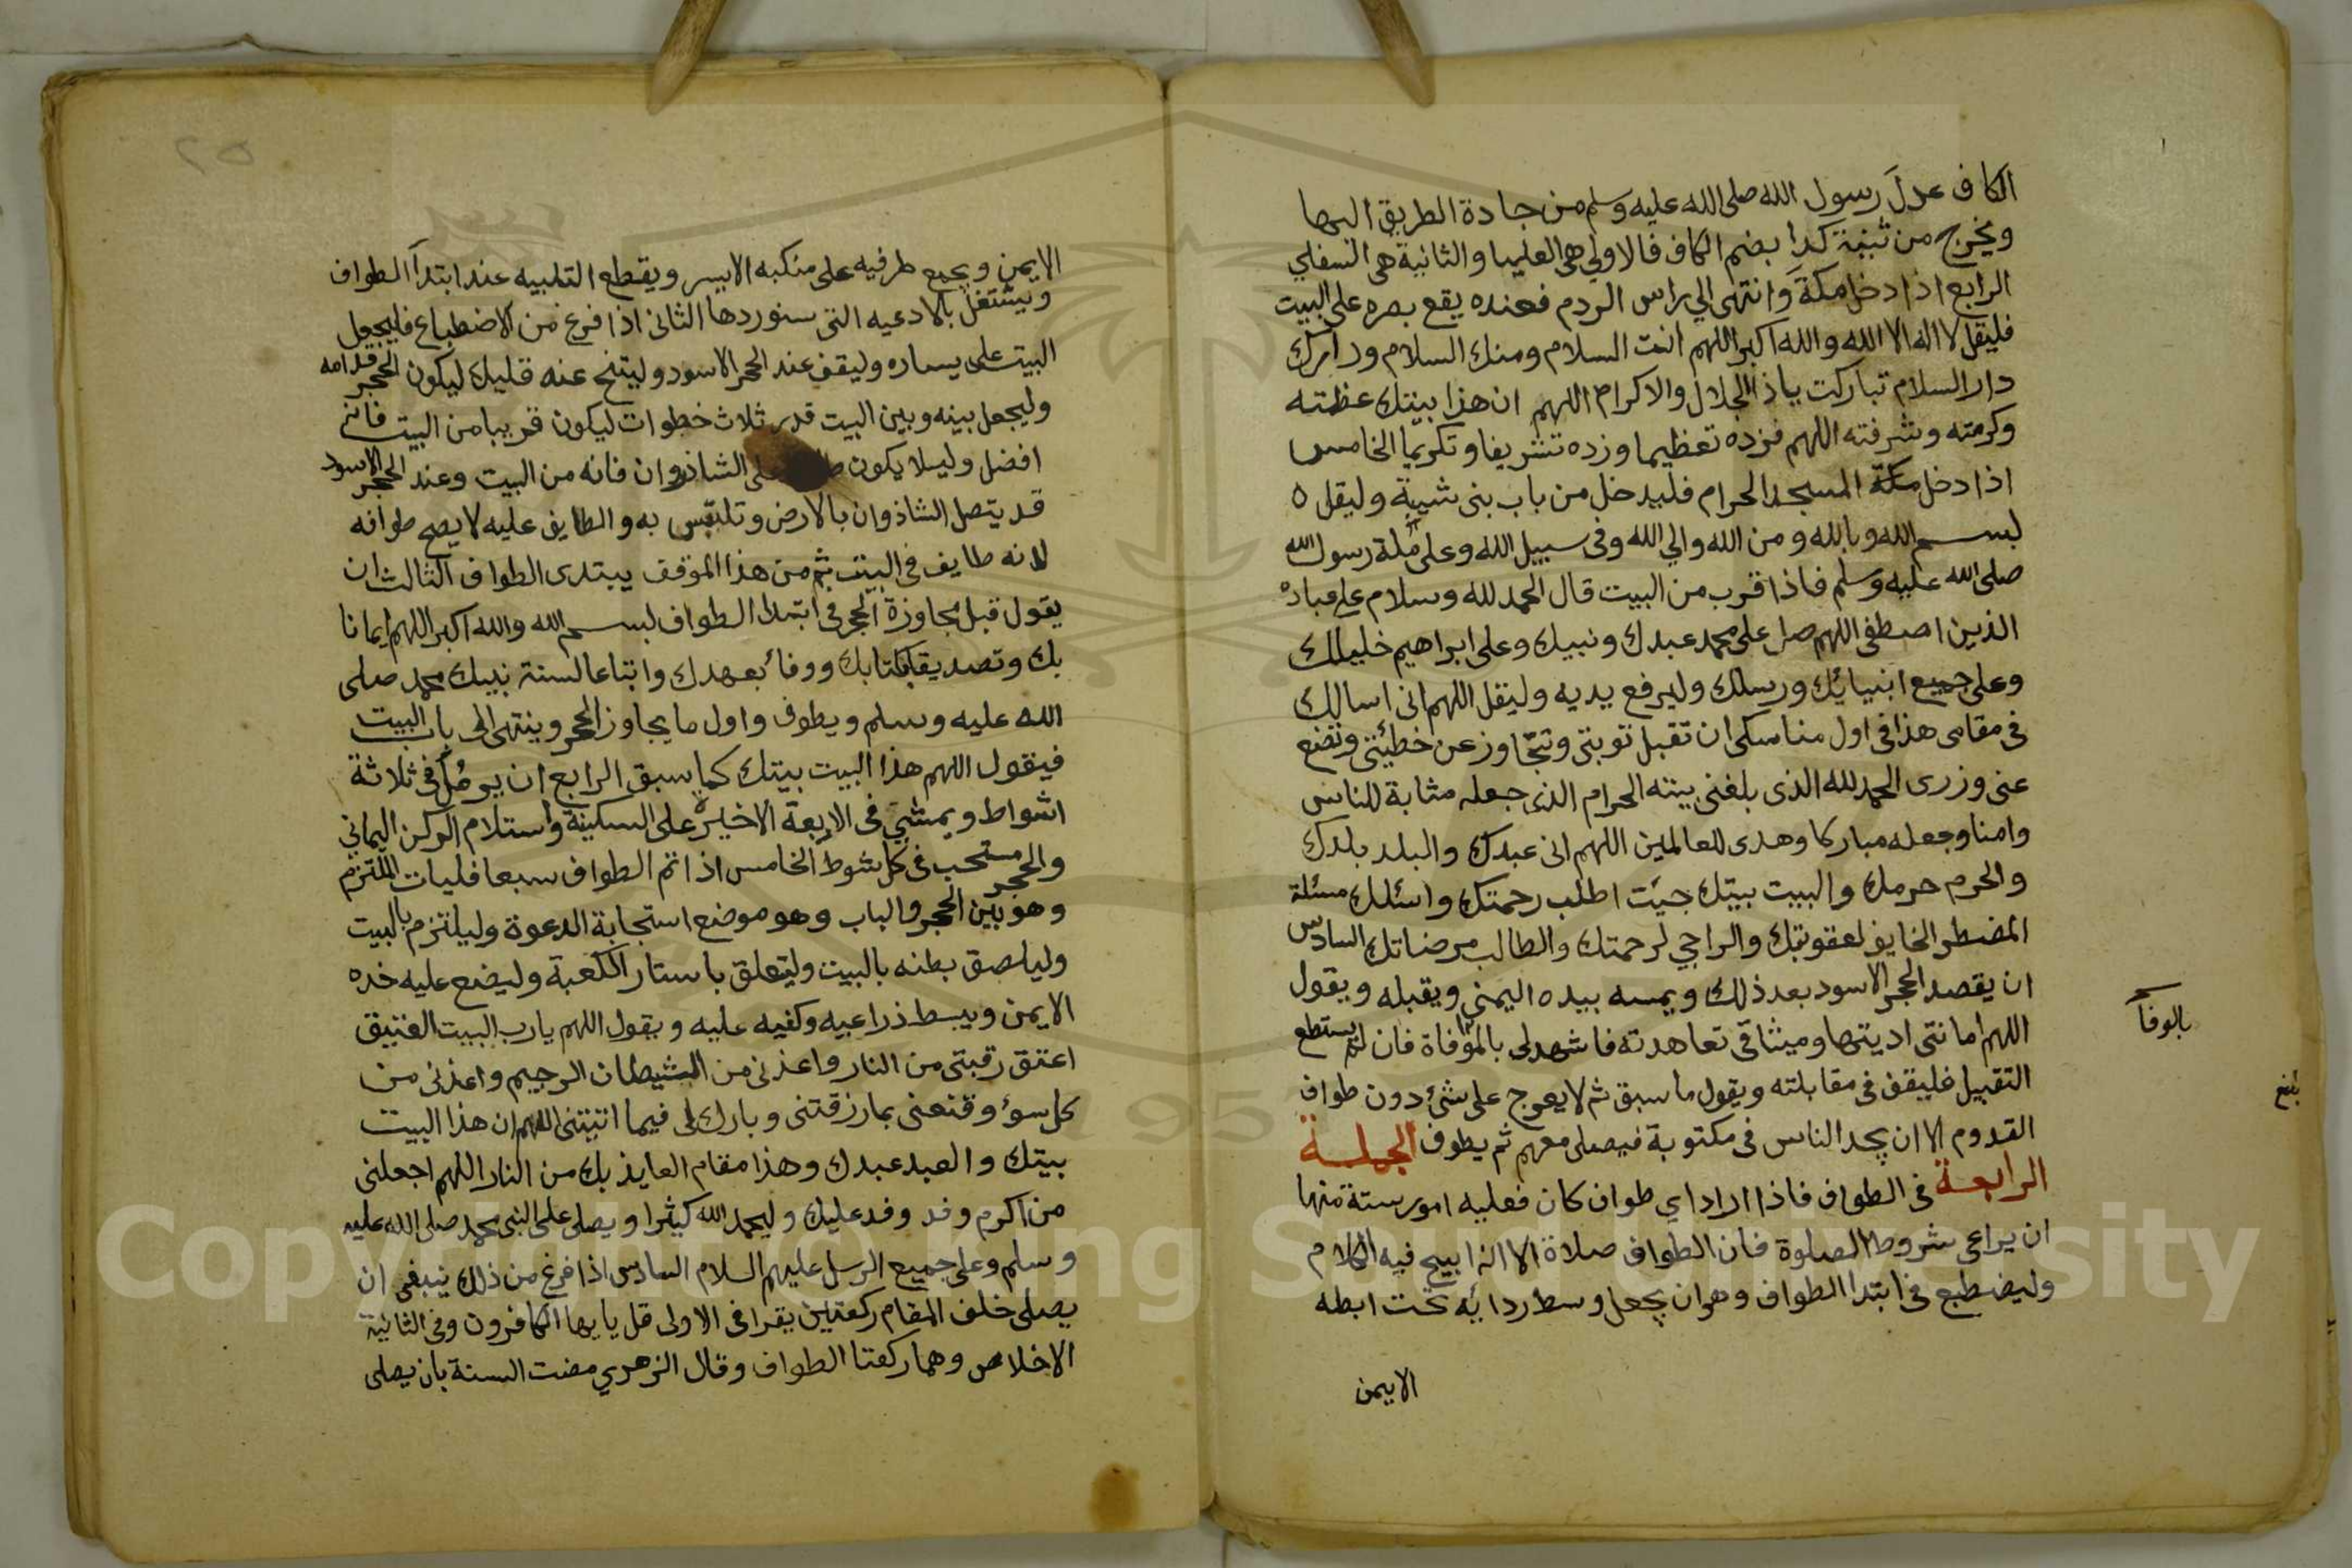 الكاف عدل رسول الله صلى الله عليه وسلم من جادة الطريق اليها
ويخرج من ثنية كدا بضم الكاف فالاولي هى العليا والثانية هى السفلي
الرابع اذا دخل مكة وانتهى الي راس الردم فعنده يقع بصره على البيت
فليقل لا اله الا الله والله اكبر اللهم انت السلام ومنك السلام ودارك
دار السلام تباركت ياذا الجلال والاكرام اللهم ان هذا بيتك عظمته
وكرمته وشرفته اللهم فزده تعظيما وزده تشريفا وتكريما الخامس
اذا دخل مكة المسجد الحرام فليدخل من باب بنى شيبة وليقل ه
بسم الله وبالله ومن الله والي الله وفى سبيل الله وعلى ملة رسول الله
صلى الله عليه وسلم فاذا قرب من البيت قال الحمد لله وسلام على عباده
الذين اصطفى اللهم صل على محمد عبدك ونبيك وعلى ابراهيم خليلك
وعلى جميع انبيائك ورسلك وليرفع يديه وليقل اللهم انى اسالك
فى مقامى هذا فى اول مناسكى ان تقبل توبتى وتتجاوز عن خطيئتى وتضع
عنى وزرى الحمد لله الذى بلغنى بيته الحرام الذى جعله مثابة للناس
وامنا وجعله مباركا وهدى للعالمين اللهم انى عبدك والبلد بلدك
والحرم حرمك والبيت بيتك جيت اطلب رحمتك واسئلك مسئلة
المضطر الخايف لعقوبتك والراجي لرحمتك والطالب مرضاتك السادس
ان يقصد الحجر الاسود بعد ذلك ويمسه بيده اليمني ويقبله ويقول
اللهم امانتى اديتها وميثاقى تعاهدته فاشهد لى بالموافاة فان لم يستطع
بالوفا
التقبيل فليقف فى مقابلته ويقول ما سبق ثم لا يعرج على شئ دون طواف
بلغ
القدوم الا ان يجد الناس فى مكتوبة فيصلى معهم ثم يطوف الجملة
الرابعة فى الطواف فاذا اراد اي طواف كان فعليه امور ستة منها
ان يراعى شروط الصلوة فان الطواف صلاة الا انه ابيح فيه الكلام
وليضطبع فى ابتدا الطواف وهو ان يجعل وسط ردائه تحت ابطه
الايمن
٢٥
الايمن ويجمع طرفيه على منكبه الايسر ويقطع التلبيه عند ابتدآ الطواف
ويشتغل بالادعيه التى سنوردها الثانى اذا فرغ من الاضطباع فليجعل
البيت على يساره وليقف عند الحجر الاسود وليتنح عنه قليلا ليكون الحجر قدامه
وليجعل بينه وبين البيت قدر ثلاث خطوات ليكون قريبا من البيت فانه
افضل وليلا يكون على الشاذروان فانه من البيت وعند الحجر الاسود
قد يتصل الشاذوان بالارض وتلتبس به والطايف عليه لا يصح طوافه
لانه طايف فى البيت ثم من هذا الموقف يبتدى الطواف الثالث ان
يقول قبل مجاوزة الحجر فى ابتدا الطواف بسم الله والله اكبر اللهم ايمانا
بك وتصديقا بكتابك ووفائ بعهدك واتباعا لسنة نبيك محمد صلى
الله عليه وسلم ويطوف واول ما يجاوز الحجر وينتهى الى باب البيت
فيقول اللهم هذا البيت بيتك كما سبق الرابع ان يرمل فى ثلاثة
اشواط ويمشي فى الاربعة الاخيرة على السكينة واستلام الركن اليماني
والحجر مستحب فى كل شوط الخامس اذا تم الطواف سبعا فليات الملتزم
وهو بين الحجر والباب وهو موضع استجابة الدعوة وليلتزم بالبيت
وليلصق بطنه بالبيت وليتعلق باستار الكعبة وليضع عليه خده
الايمن ويبسط ذراعيه وكفيه عليه ويقول اللهم يارب البيت العتيق
اعتق رقبتى من النار واعذنى من الشيطان الرجيم واعذنى من
كل سوئ وقنعنى بما رزقتنى وبارك لى فيما اتيتنى اللهم ان هذا البيت
بيتك والعبد عبدك وهذا مقام العايذ بك من النار اللهم اجعلنى
من اكرم وفد وفد عليك وليحمد الله كثيرا ويصلى على النبى محمد صلى الله عليه
وسلم وعلى جميع الرسل عليهم السلام السادس اذا فرغ من ذلك ينبغى ان
يصلى خلف المقام ركعتين يقرا فى الاولى قل يايها الكافرون وفى الثانية
الاخلاص وهما ركعتا الطواف وقال الزهري مضت السنة بان يصلى
Copyright © King Saud University